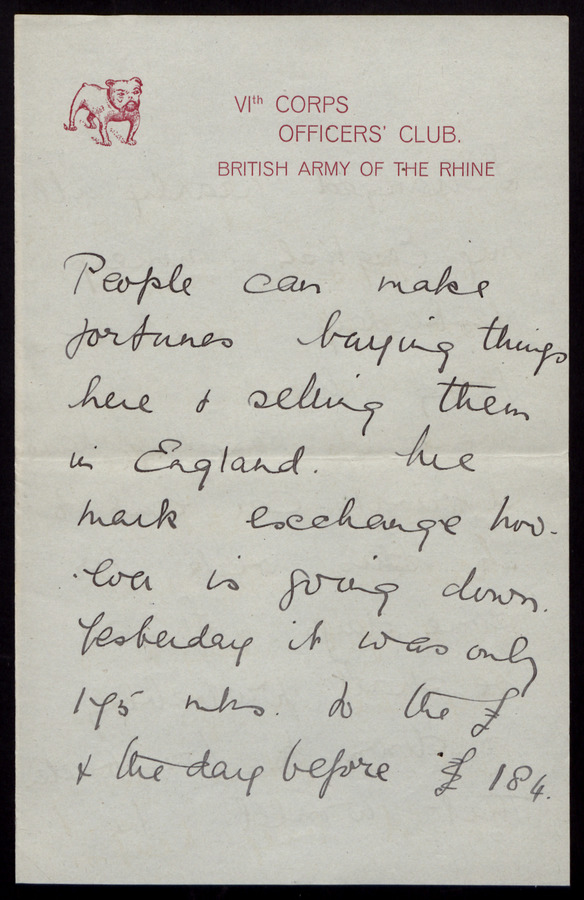 VIth CORPS
OFFICERS' CLUB.
BRITISH ARMY OF THE RHINE
People can make
fortunes buying things
here & selling them
in England. The
mark exchange how-
ever is going down.
Yesterday it was only
175 mks. to the £
& the day before £ 184.